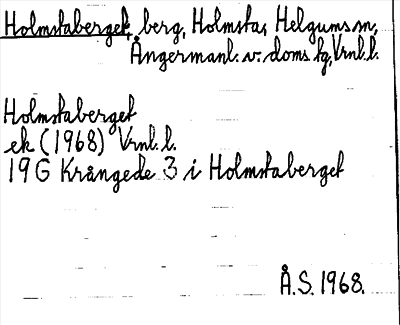 Holmstaberget, berg, Holmsta, Helgums sn,
Ångermanl. v. doms tg, Vrnl. l.
Holmstaberget
ek (1968) Vrnl. l.
19 G Krångede 3 i Holmstaberget
Å.S. 1968.